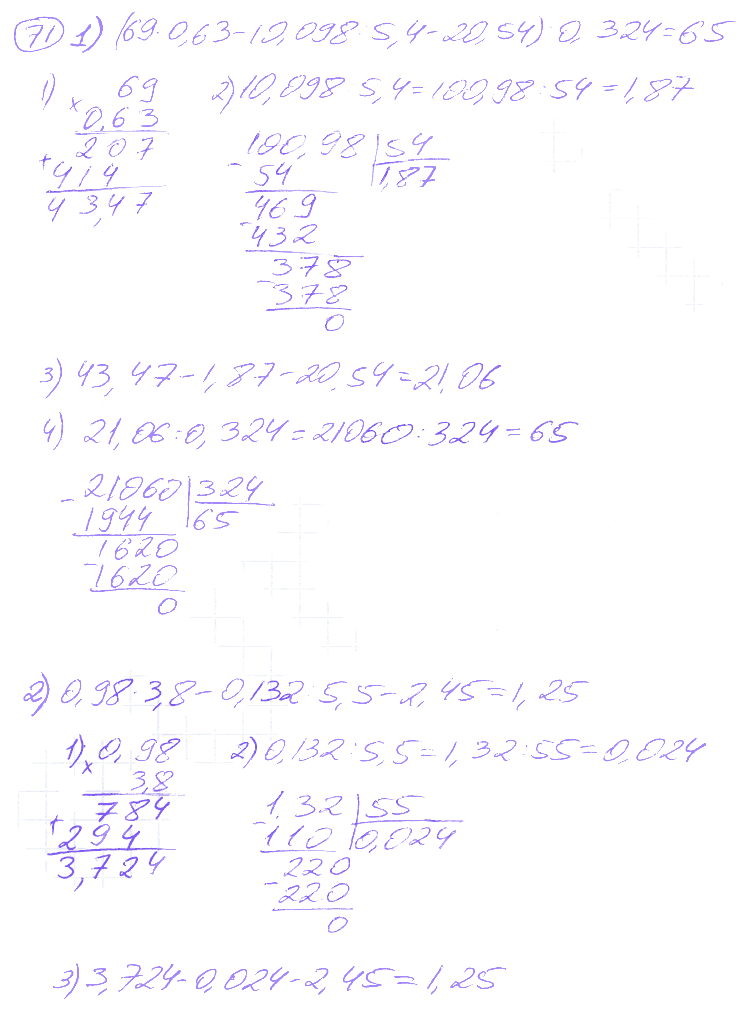 71 1) (69·0,63-10,098:5,4-20,54):0,324=65
1) 69
× 0,63
207
+ 414
43,47
2) 10,098:5,4=100,98:54=1,87
100,98 | 54
- 54 1,87
469
- 432
378
- 378
0
3) 43,47-1,87-20,54=21,06
4) 21,06:0,324=21060:324=65
- 21060 | 324
1944 65
1620
- 1620
0
2) 0,98·3,8-0,132:5,5-2,45=1,25
1) 0,98
× 3,8
784
+ 294
3,724
2) 0,132:5,5=1,32:55=0,024
1,32 | 55
- 110 0,024
220
- 220
0
3) 3,724-0,024-2,45=1,25